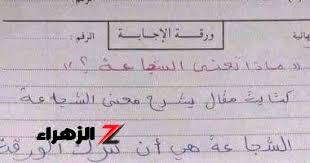 ورقة الإجابة
الرقم :
« ماذا تعني الشجاعة ؟ »
كتابة مقال يشرح معنى الشجاعة
الزهراء
الشجاعة هي أن تترك الورقة